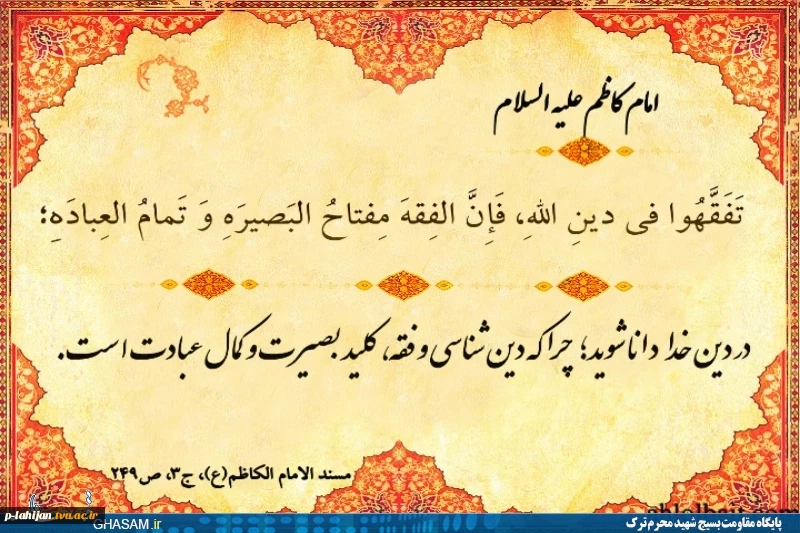 امام کاظم علیه السلام
تَفَقَّهُوا فی دینِ اللهِ، فَإِنَّ الفِقهَ مِفتاحُ البَصیرَهِ وَ تَمامُ العِبادَهِ؛
در دین خدا دانا شوید؛ چرا که دین شناسی و فقه، کلید بصیرت و کمال عبادت است.
مسند الامام الکاظم(ع)، ج۳، ص۲۴۹
p-lahijan.tvu.ac.ir
GHASAM.ir
پایگاه مقاومت بسیج شهید محرم ترک